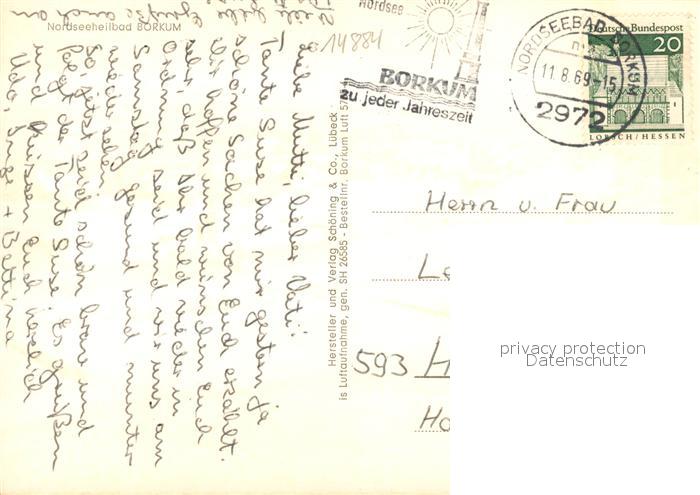 Nordseeheilbad BORKUM
14884
Nordsee
BORKUM
zu jeder Jahreszeit
NORDSEEBAD BORKUM
11.8.69-15
2972
Deutsche Bundespost
20
LORSCH/HESSEN
Viele liebe
Grüße auch an
Liebe Mutti, lieber Vati!
Tante Suse hat mir gestern ja
schöne Sachen von Euch erzählt.
Wir hoffen und wünschen Euch
sehr, daß Ihr bald wieder in
Ordnung seid und wir uns am
Samstag gesund und munter
wiedersehen.
So, jetzt seid schön brav und
folgt der Tante Suse. Es grüßen
und küssen Euch herzlich
Udo, Inge + Bettina
Hersteller und Verlag Schöning & Co., Lübeck
is Luftaufnahme, gen. SH 26585 - Bestellnr. Borkum Luft 57
Herrn u. Frau
593
privacy protection
Datenschutz